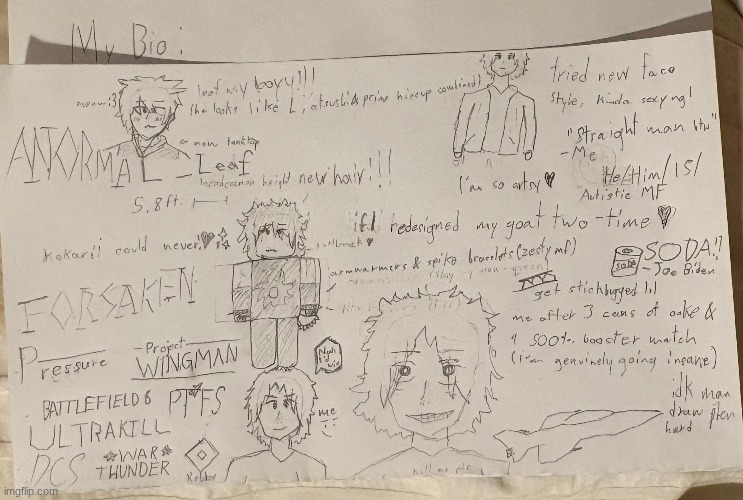 My Bio:
meow :3
leaf my boyy!!!
(he looks like L, atsushi & prime mineup combined)
new tanktop
- Leaf
headcanon height
5,8 ft.
new hair!!!
tried new face
style, kinda sexy ng!
"Straight man btw"
- Me
He/Him/15/
Autistic MF
I'm so artsy
kokarii could never!
redesigned my goat two-time
turtleneck
armwarmers & spike bracelets (zesty mf)
FORSAKEN
SODA!!
- Joe Biden
SODA
get stickbugged lol
me after 3 cans of coke &
1 500% booster match
(i'am genuinely going insane)
Pressure
-Project-
WINGMAN
Nah
I'd
win
BATTLEFIELD 6
PTFS
ULTRAKILL
DCS
WAR
THUNDER
Roblox
me
idk man
draw plen
hard
kill me plz
imgflip.com